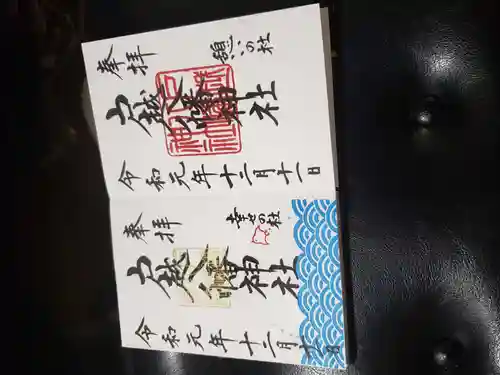 奉拝
憩いの社
山越八幡神社
令和元年十二月十一日
奉拝
幸せの社
山越八幡神社
令和元年十二月十一日